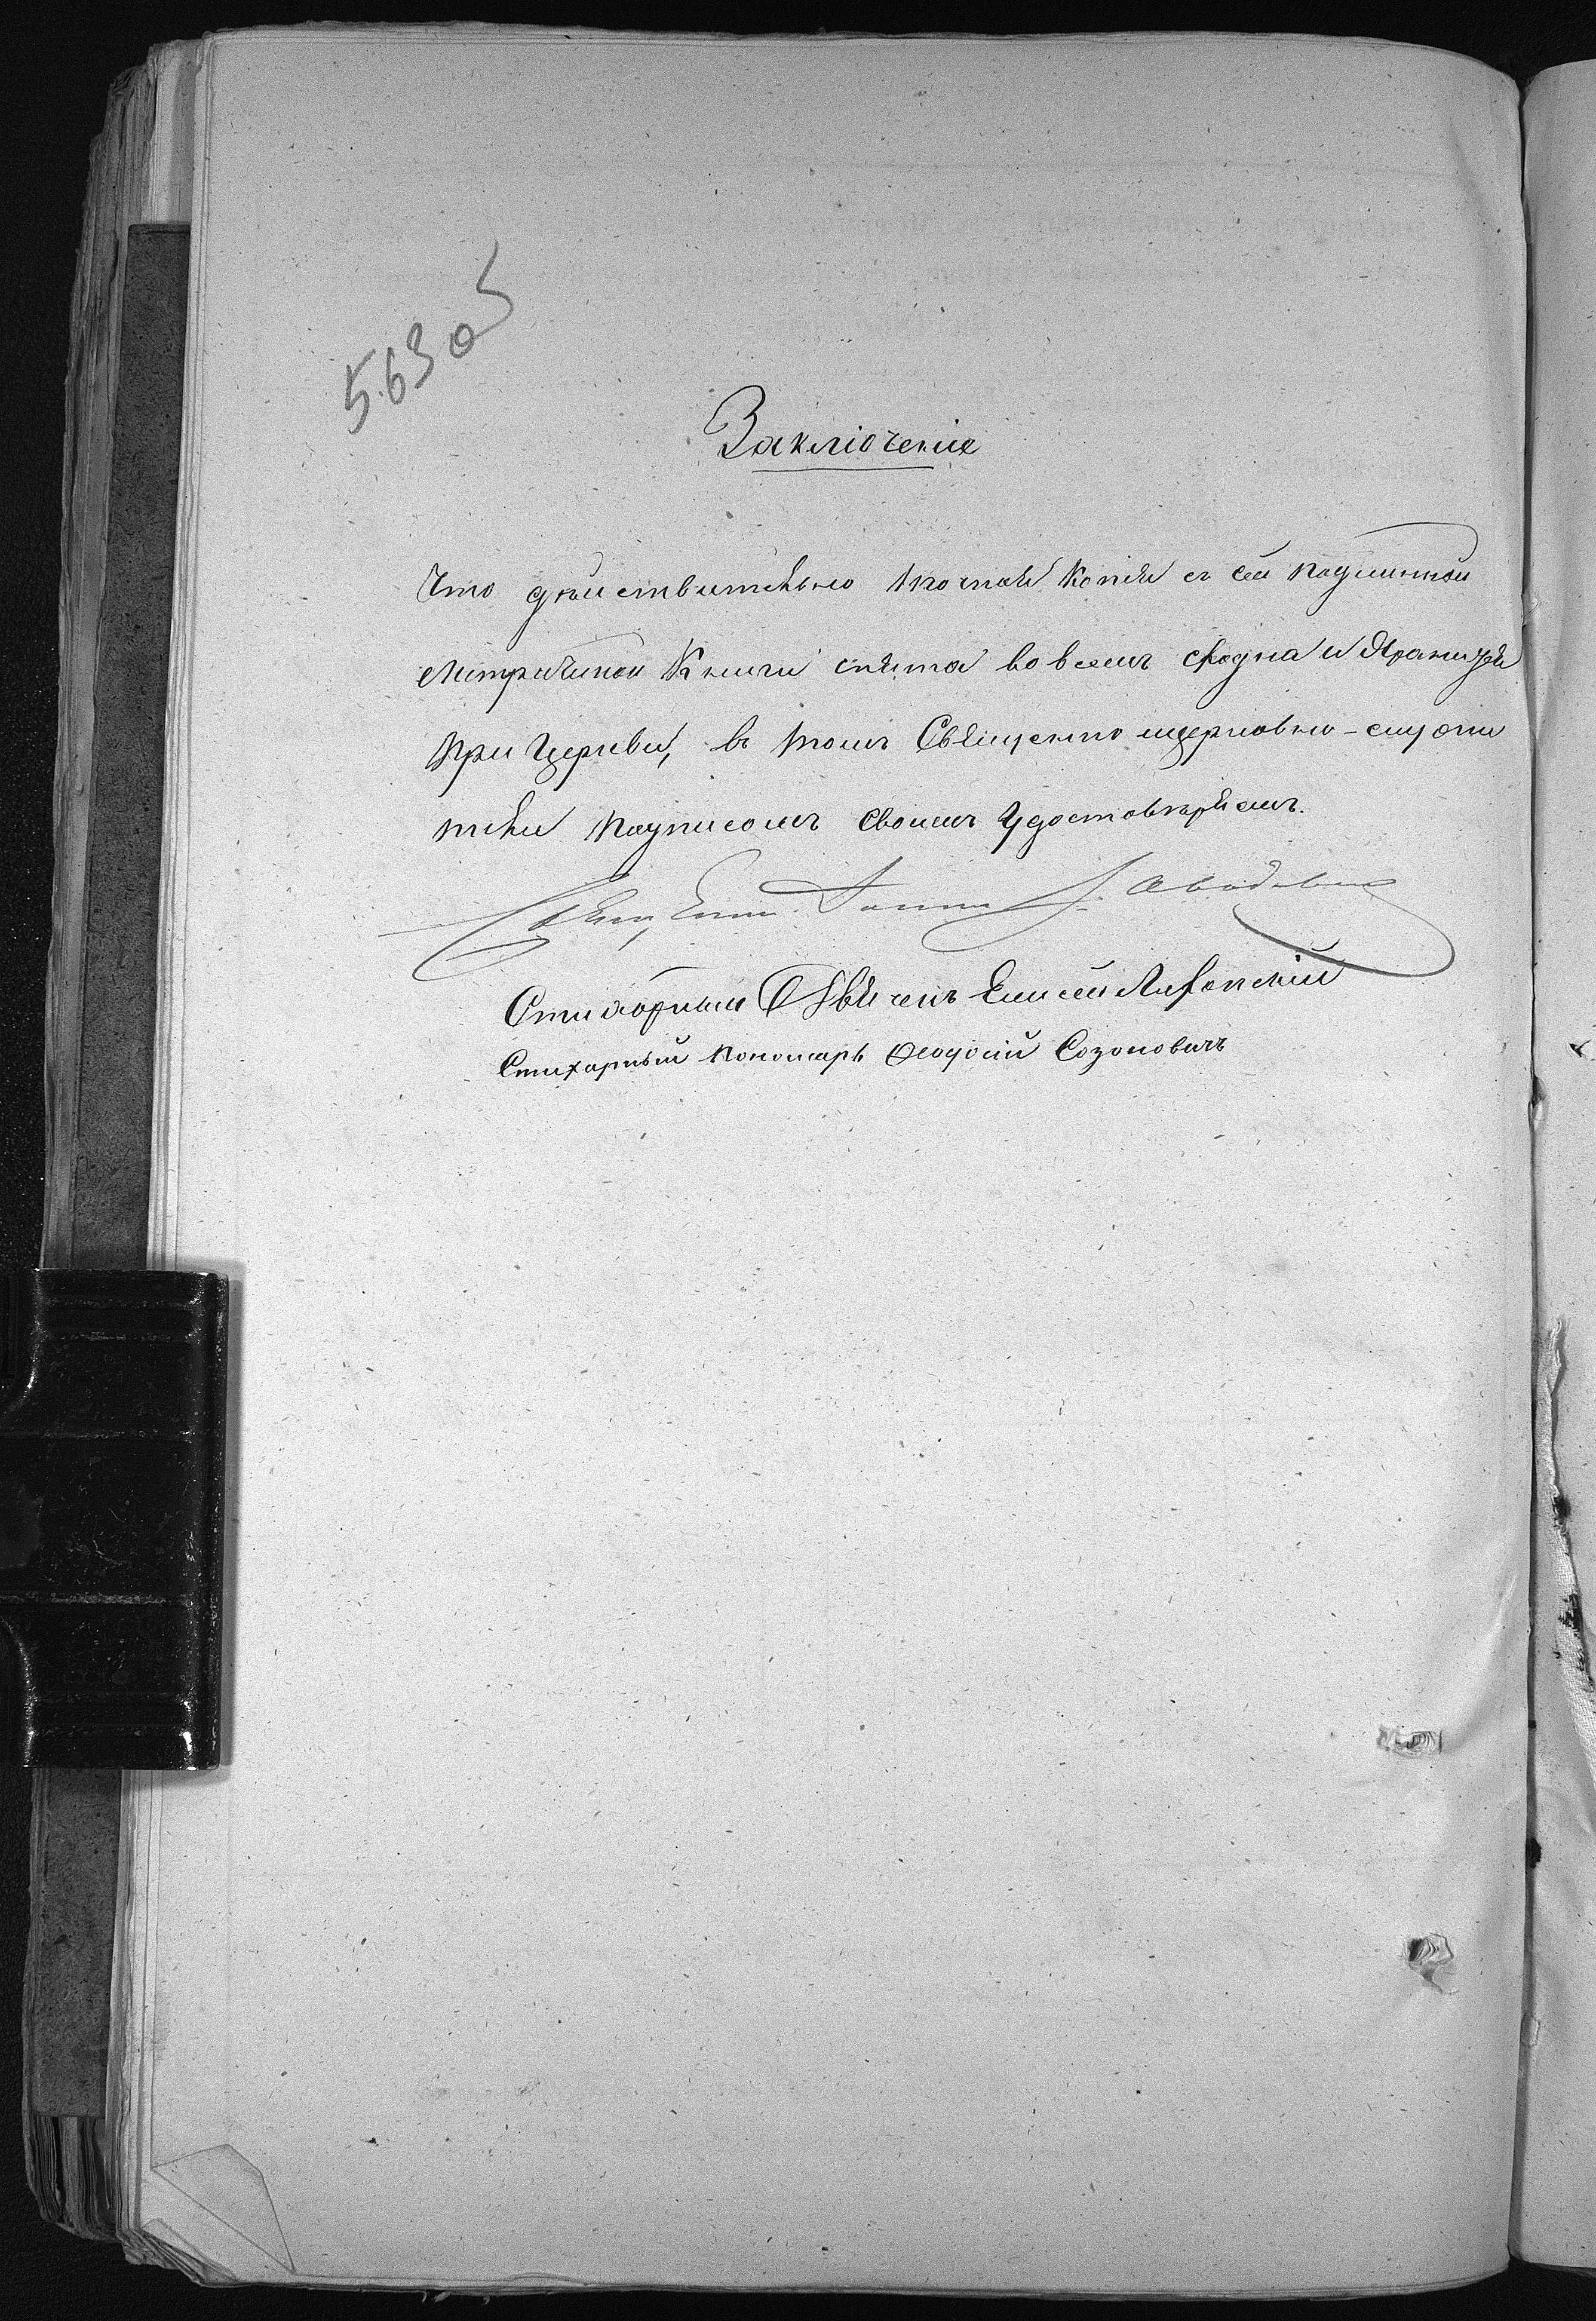 563 об
Заключеніе
Что дѣйствительно точная Копія съ сей подлинной
Метричной Книги снята во всемъ сходна и хранится
при Церкви, въ томъ Священно и церковно-служи
тели подписомъ своимъ Удостовѣряемъ.
Священ
Стихарный Елисей
Стихарный пономарь Ѳеодосій Созоновичъ